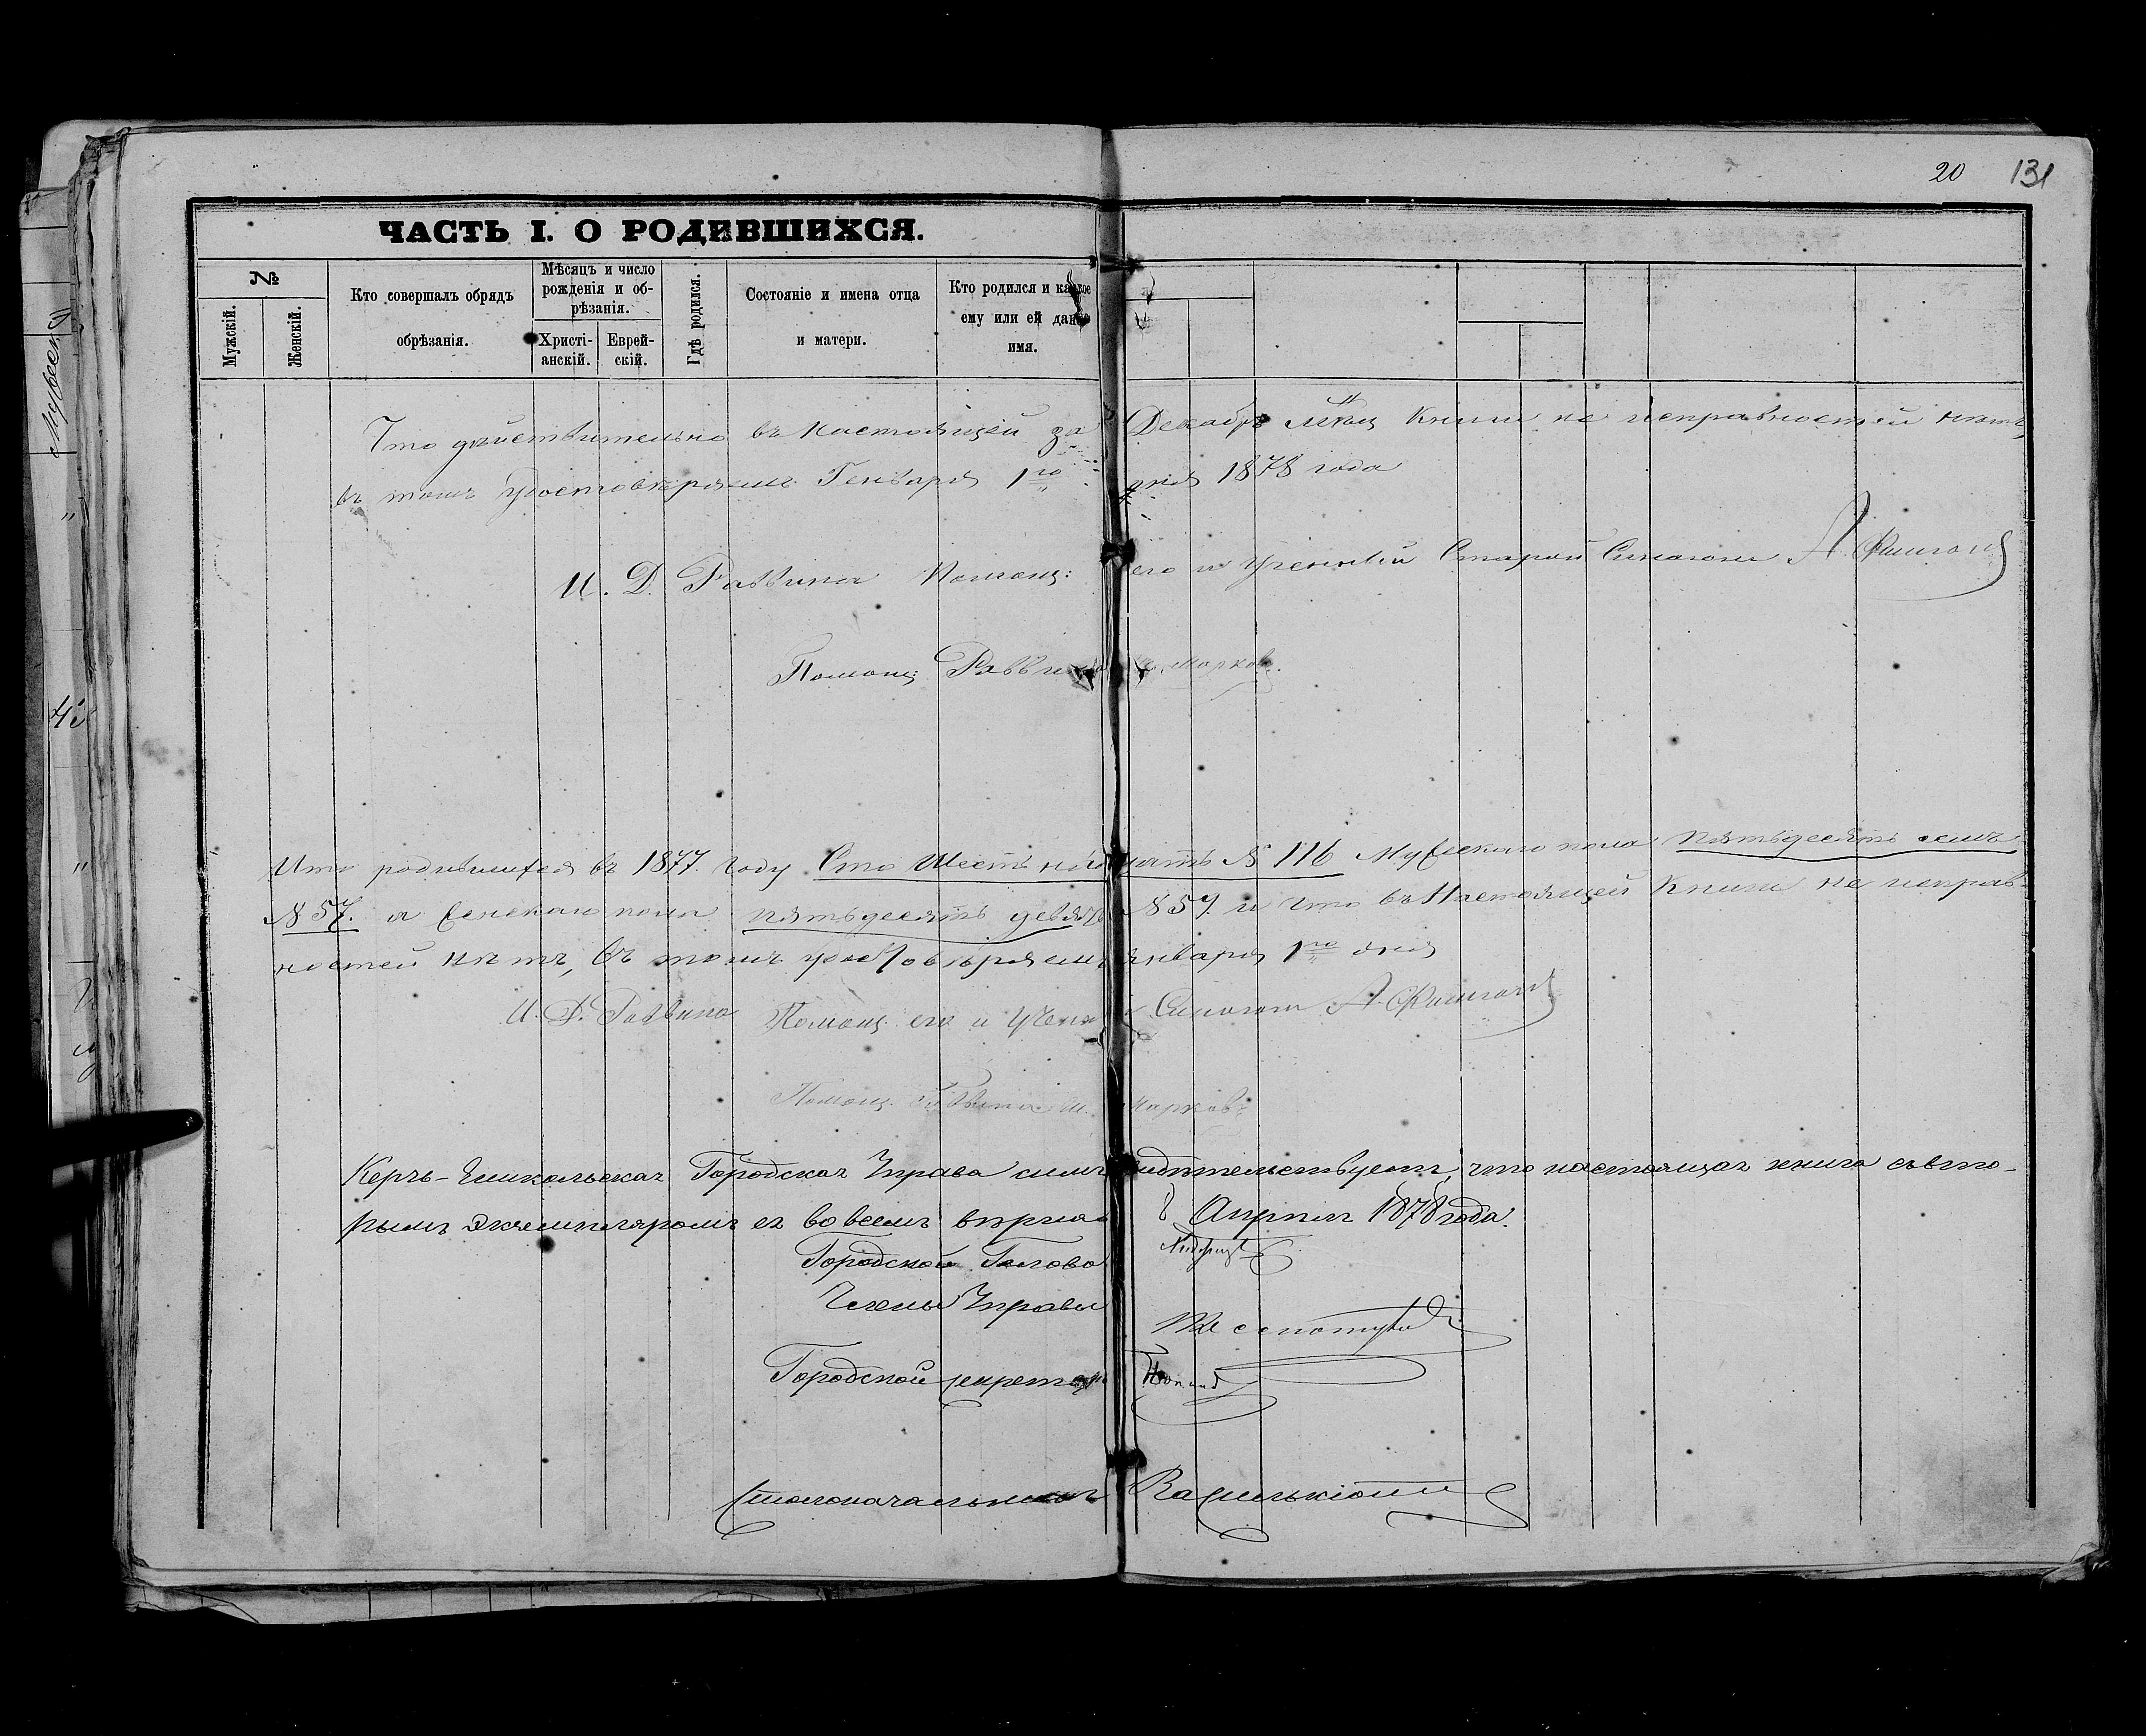 20 131
ЧАСТЬ I. О РОДИВШИХСЯ.
№
Мужскій.
Женскій.
Кто совершалъ обрядъ
обрѣзанія.
Мѣсяцъ и число
рожденія и об-
рѣзанія.
Христі-
анскій.
Еврей-
скій.
Гдѣ родился.
Состояніе и имена отца
и матери.
Кто родился и какое
ему или ей дано
имя.
Что дѣйствительно въ настоящей за Декабрь мѣсяц книги не исправностей нѣтъ,
въ томъ удостовѣряемъ Генваря 1го дня 1878 года
И. Д. Раввина Помощ: его и Ученый Старой Синагоги А. Фишгойт
Помощ: Раввина Марковъ.
Что родившихся въ 1877. году Сто Шестнадцать № 116 Мужескаго пола пятьдесятъ семь
№ 57. а женскаго пола пятьдесятъ девять № 59. и что въ Настоящей Книги не исправ-
ностей нѣтъ, въ томъ удостовѣряемъ января 1го дня
И. Д. Раввина Помощ. его и Учен Синагоги А. Фишгойт
Помощ. Раввина Ш. Марковъ
Керчь-Еникольская Городская Управа симъ свидѣтельствуетъ, что настоящая книга съ вто-
рымъ экземпляромъ ея во всемъ вѣрна 8 Апрѣля 1878 года.
Городской Голова
Члены Управы
Городской Секретарь
Столоначальникъ